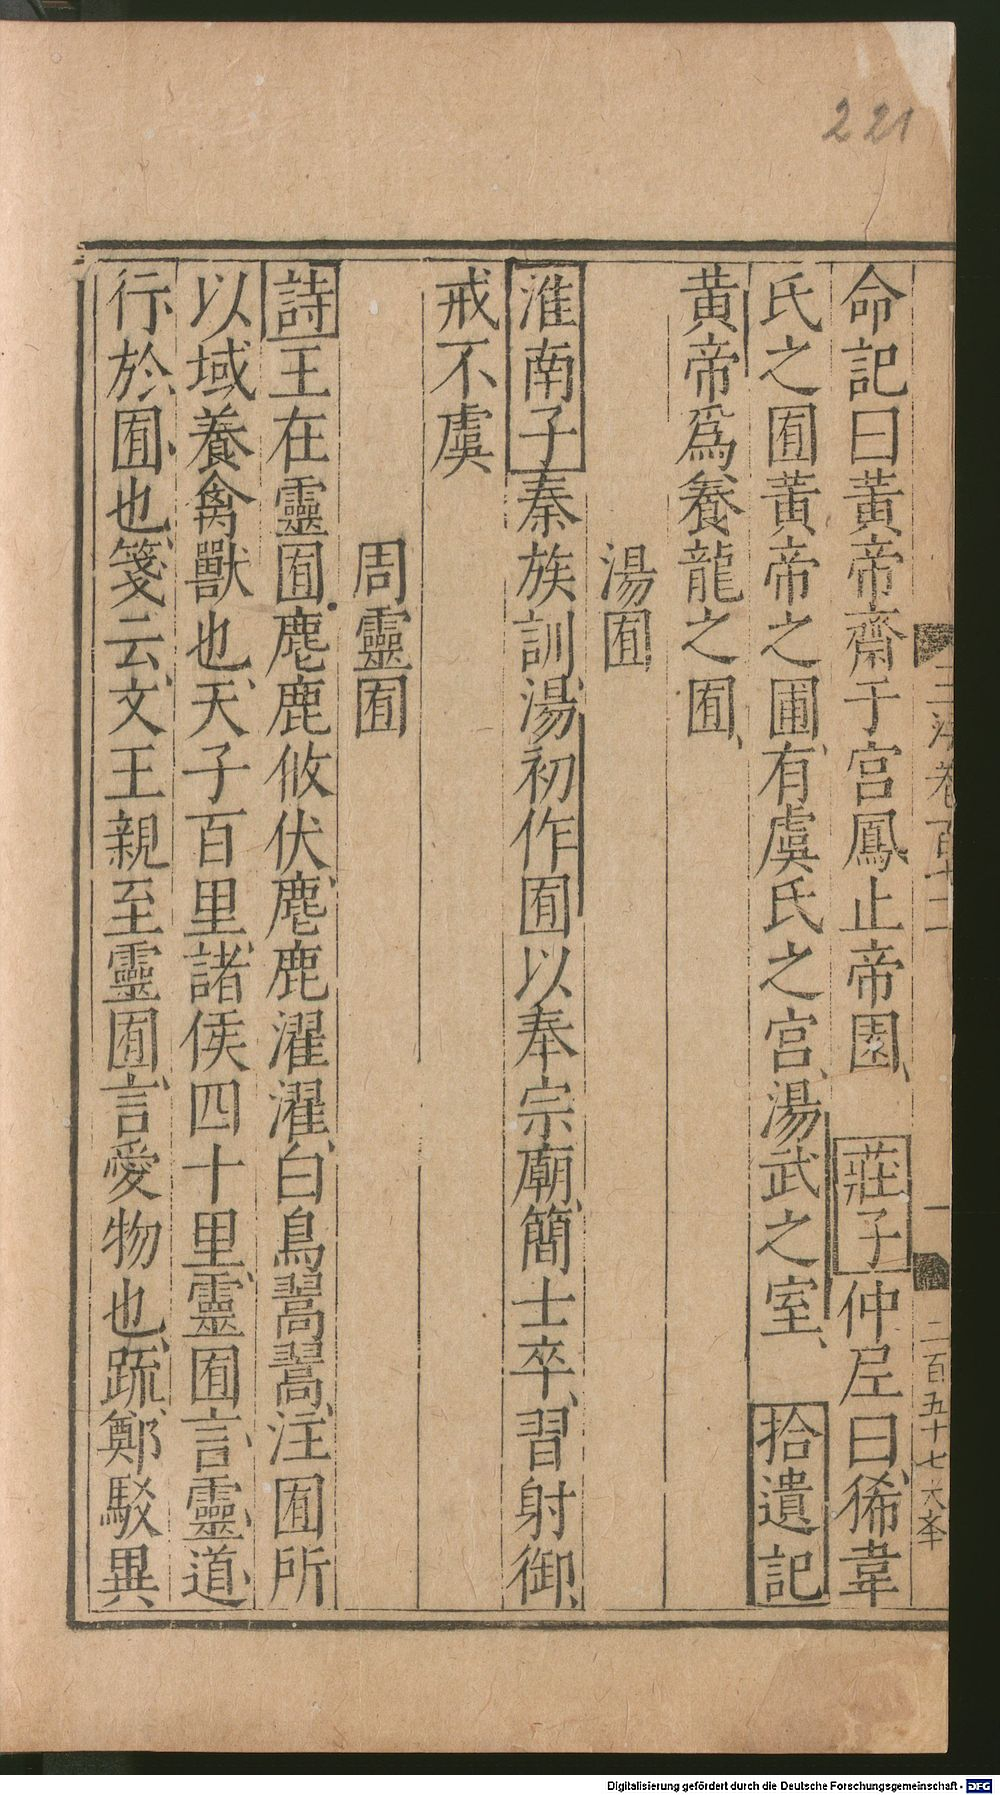 221
命記曰黃帝齋于宮鳳止帝園、 莊子仲尼曰狶韋
氏之囿黃帝之圃有虞氏之宮湯武之室、 拾遺記
黃帝爲養龍之囿、
湯囿
淮南子秦族訓湯初作囿以奉宗廟簡士卒、習射御、
戒不虞
周靈囿
詩王在靈囿麀鹿攸伏麀鹿濯濯白鳥翯翯注囿所
以域養禽獸也天子百里諸侯四十里靈囿言靈道
行於囿也箋云文王親至靈囿言愛物也疏鄭駁異
卷百十二
一
二百五十七
Digitalisierung gefördert durch die Deutsche Forschungsgemeinschaft - DFG